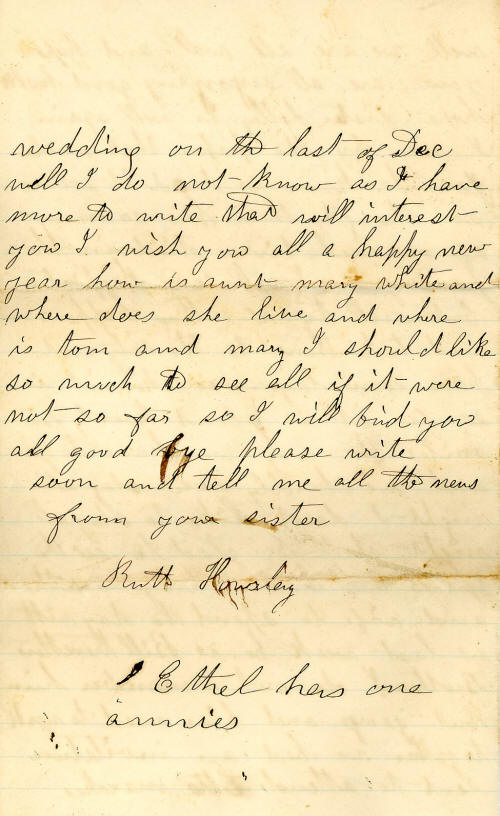 wedding on the last of Dec
well I do not know as I have
more to write that will interest
you I wish you all a happy new
year how is aunt mary white and
where does she live and where
is tom and mary I should like
so much to see all if it were
not so far so I will bid you
all good bye please write
soon and tell me all the news
from your sister
Ruth
Ethel hers one
annies